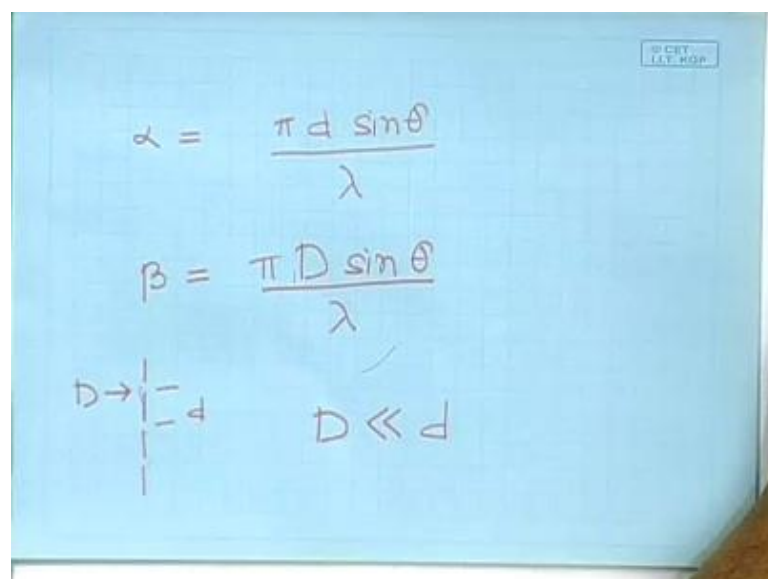 © CET
I.I.T. KGP
α = π d sinθ / λ
β = π D sin θ / λ
D→
d
D << d